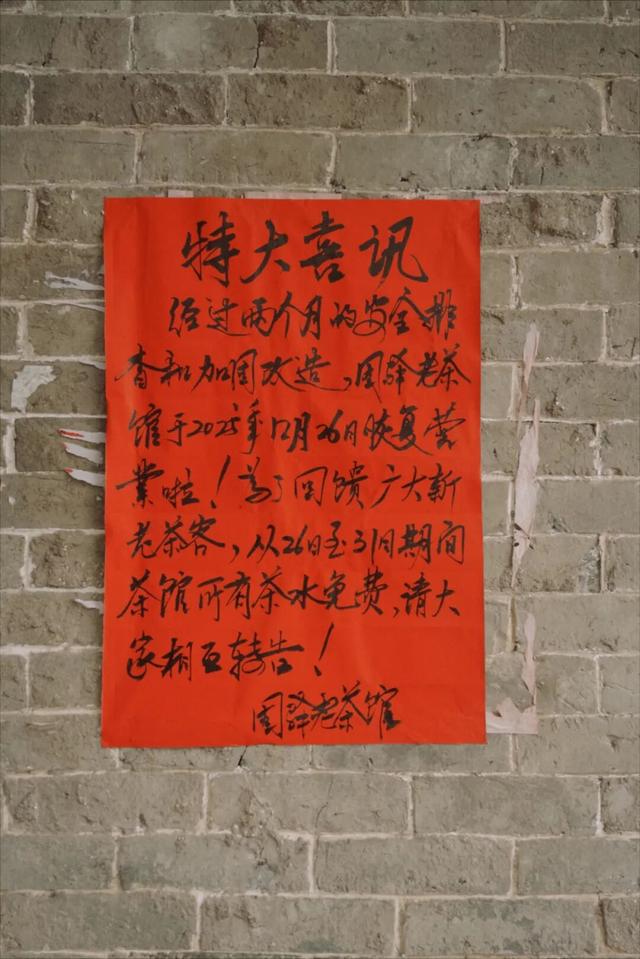 特大喜讯
经过两个月的安全排
查和加固改造，围驿老茶
馆于2025年12月26日恢复营
业啦！为了回馈广大新
老茶客，从26日至31日期间
茶馆所有茶水免费，请大
家相互转告！
围驿老茶馆